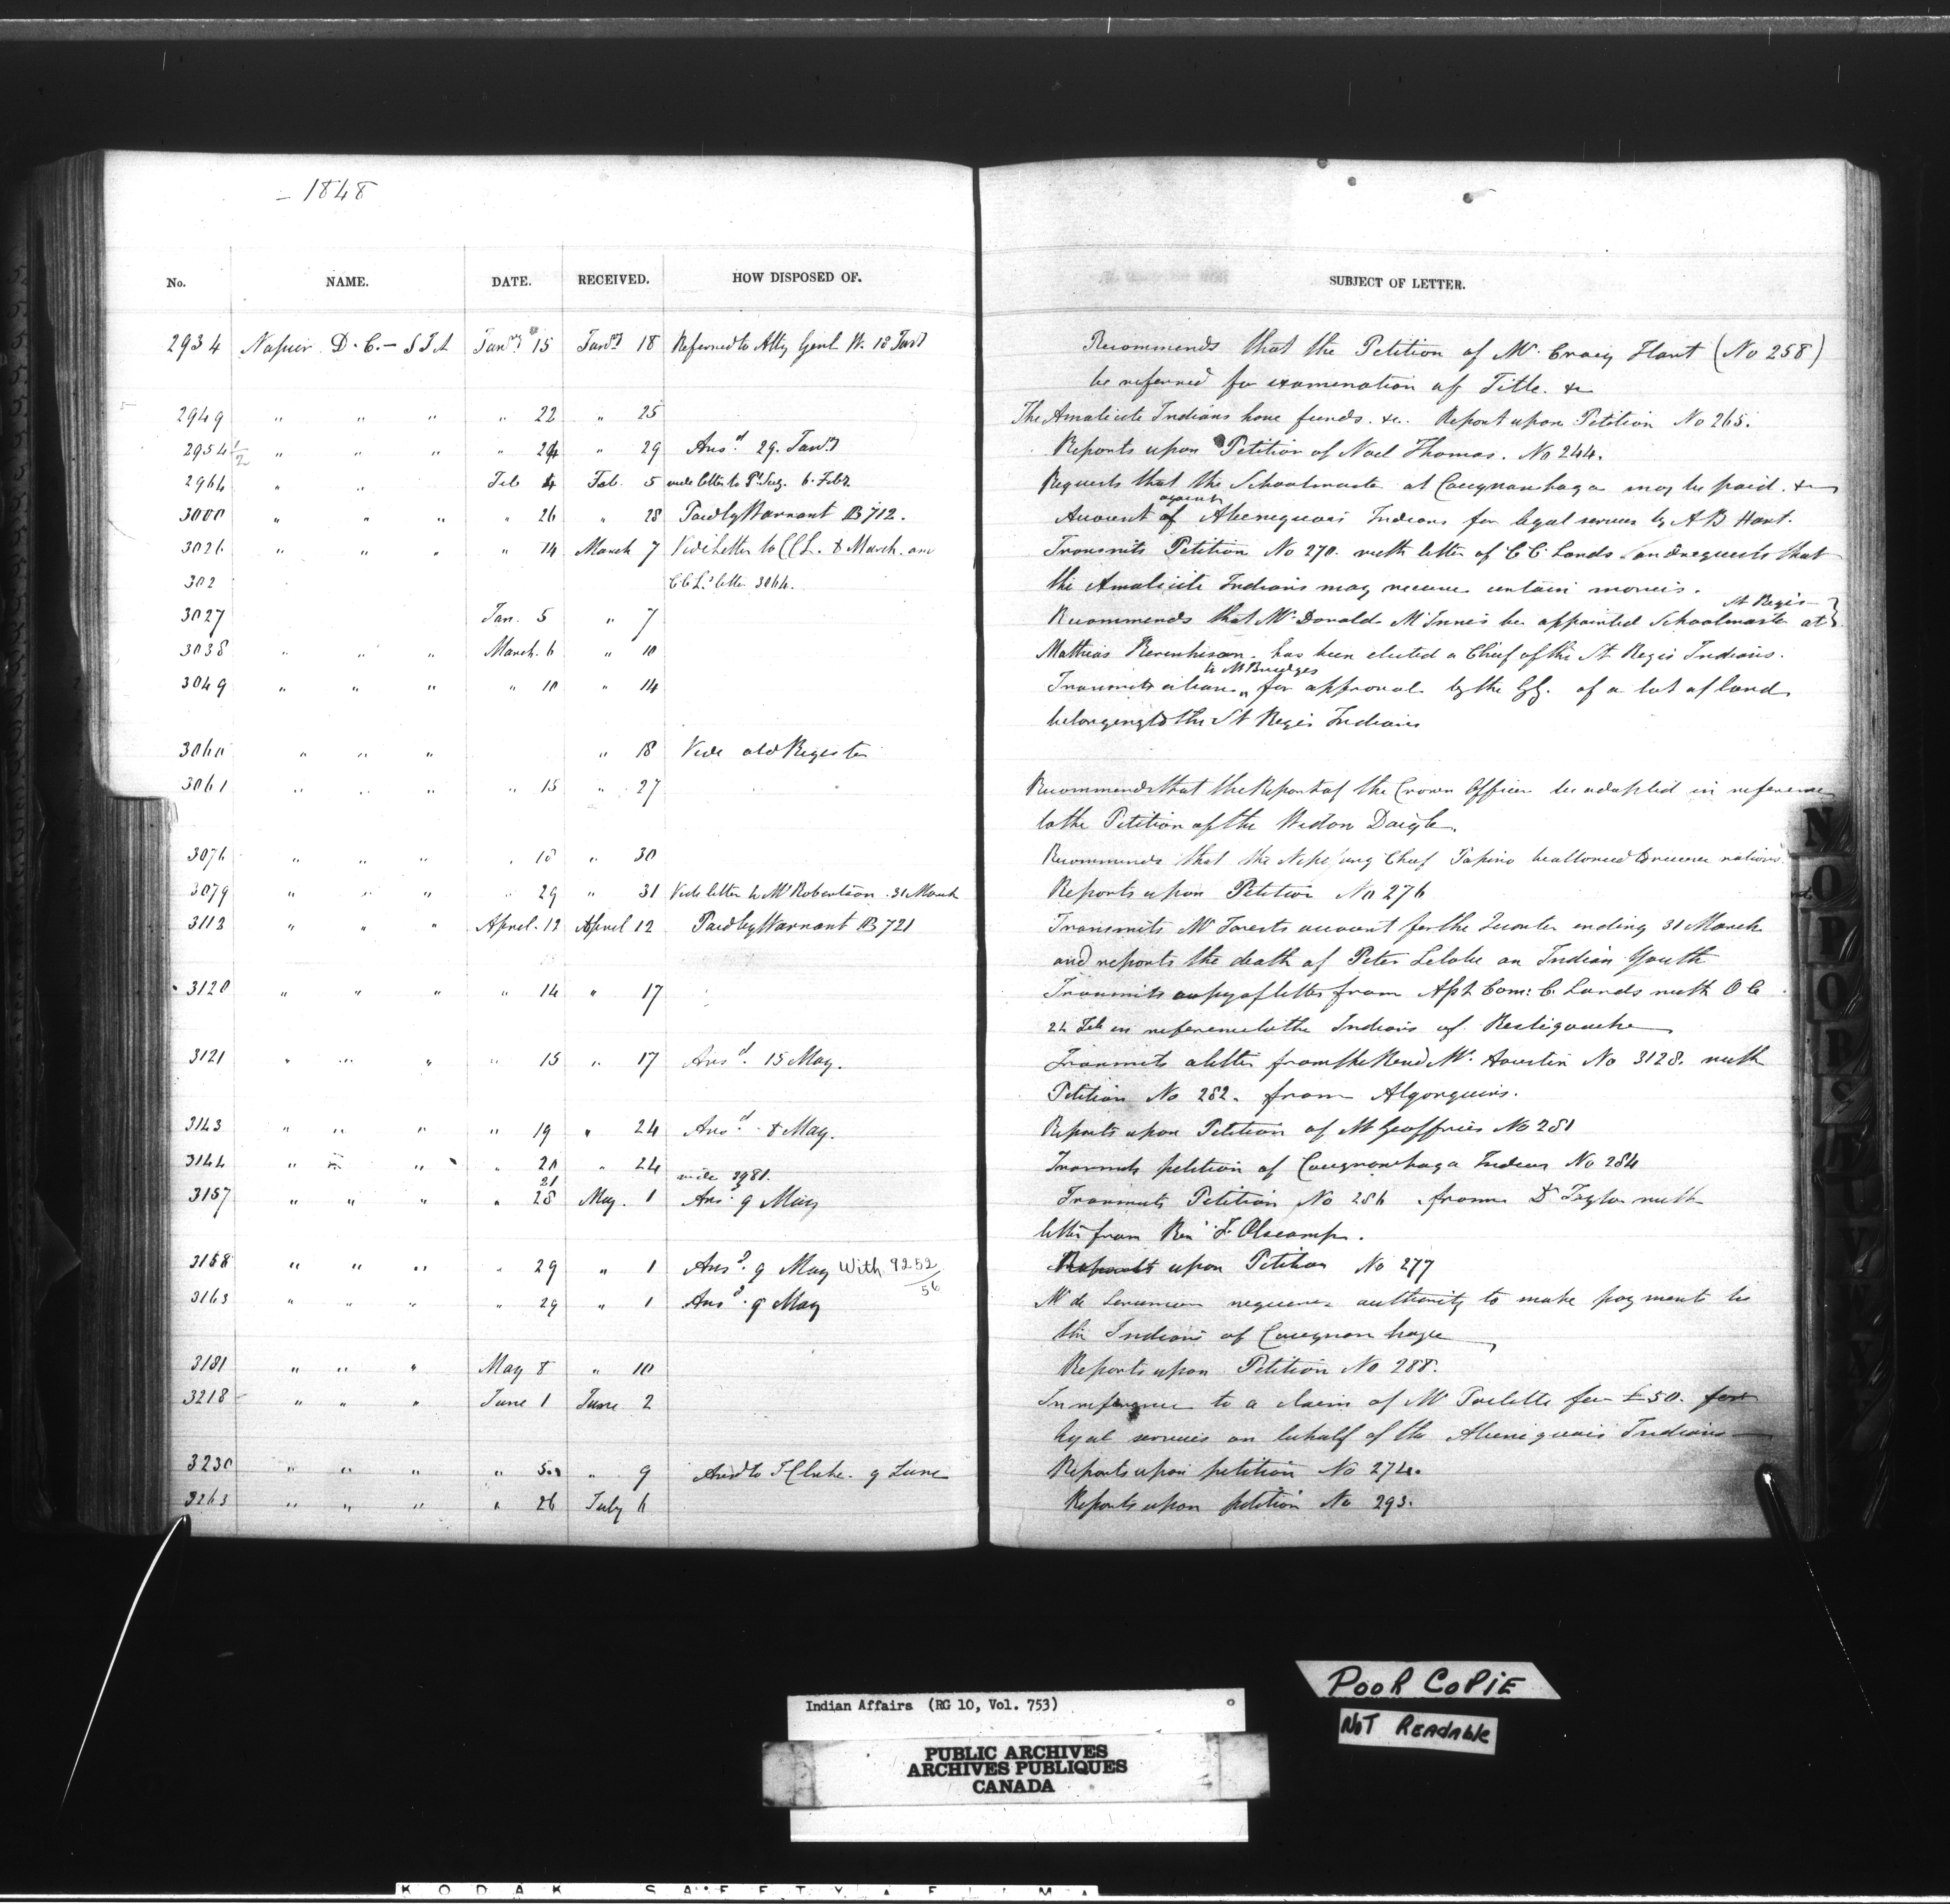 1848
No. NAME. DATE. RECEIVED. HOW DISPOSED OF. SUBJECT OF LETTER.
2934 Napier D. C. - S I A Jany 15 Jany 18 Referred to Atty Genl W. 18 Jany Recommends that the Petition of Mr Craig Hart (No 258)
be referred for examination of Title. &c
2949 " " " " 22 " 25 The Amalicite Indians have funds. &c. Report upon Petition No 265.
2954 1/2 " " " " 24 " 29 Ansd. 29. Jany Reports upon Petition of Noel Thomas. No 244.
2964 " " Feb 4 Feb. 5 vide letter to 6. Feby. Requests that the Schoolmaster at Caughnawaga may be paid. &c
against
3000 " " " " 26 " 28 Paid by Warrant B 712. Account of Abenequais Indians for legal services by A B Hart.
3026 " " " " 14 March 7 Vide letter to C C L. 8 March. and Transmits Petition No 270. with letter of C C Lands and requests that
302 C C L. letter 3064. the Amalicite Indians may receive certain monies.
St Regis
3027 Jan. 5 " 7 Recommends that Mr Donald McInnes be appointed Schoolmaster at
3038 " " " March. 6 " 10 Mathias has been elected a Chief of the St Regis Indians.
to Mr Bridges
3049 " " " " 10 " 14 Transmits a lease for approval by the GG. of a lot of land
belonging to the St Regis Indians
3060 " " " " 18 Vide old Register
3061 " " " " 15 " 27 Recommends that the Report of the Crown Officer be adopted in reference
to the Petition of the Widow Daigle.
3076 " " " " 18 " 30 Recommends that the Chief Papino be allowed to receive rations.
3079 " " " " 29 " 31 Vide letter to Mr Robertson. 31 March Reports upon Petition No 276
3112 " " " April. 12 April 12 Paid by Warrant B 721 Transmits Mr Forests account for the Quarter ending 31 March
and reports the death of Peter an Indian Youth
3120 " " " " 14 " 17 Transmits copy of letter from Asst. Com: C. Lands with O C
22 Feb in reference to the Indians of Restigouche
3121 " " " " 15 " 17 Ansd. 15 May. Transmits a letter from the Revd Mr. No 3128. with
Petition No 282. from Algonquins.
3143 " " " " 19 " 24 Ansd. 8 May. Reports upon Petition of Mr Geoffries No 281
3144 " " " " 20 " 24 Transmits petition of Caughnawaga Indians No 284
21 vide 3981.
3157 " " " " 28 May. 1 Ansd 9 May Transmits Petition No 286 from Dr Taylor with
letter from Rev F Olscamps.
3158 " " " " 29 " 1 Ansd. 9 May With 9252/56 Reports upon Petition No 277
3163 " " " " 29 " 1 Ansd. 9 May Mr de Lorimier requires authority to make payments to
the Indians of Caughnawaga
3181 " " " May 8 " 10 Reports upon Petition No 288.
3218 " " " June 1 June 2 In reference to a claim of Mr Poulette for £50. for
legal services on behalf of the Abenequais Indians
3230 " " " " 5 " 9 Ansd to T Clarke. 9 June Reports upon petition No 274.
3263 " " " " 26 July 6 Reports upon petition No 293.
Indian Affairs (RG 10, Vol. 753)
PUBLIC ARCHIVES
ARCHIVES PUBLIQUES
CANADA
POOR COPIE
NOT READABLE
KODAK SAFETY FILM